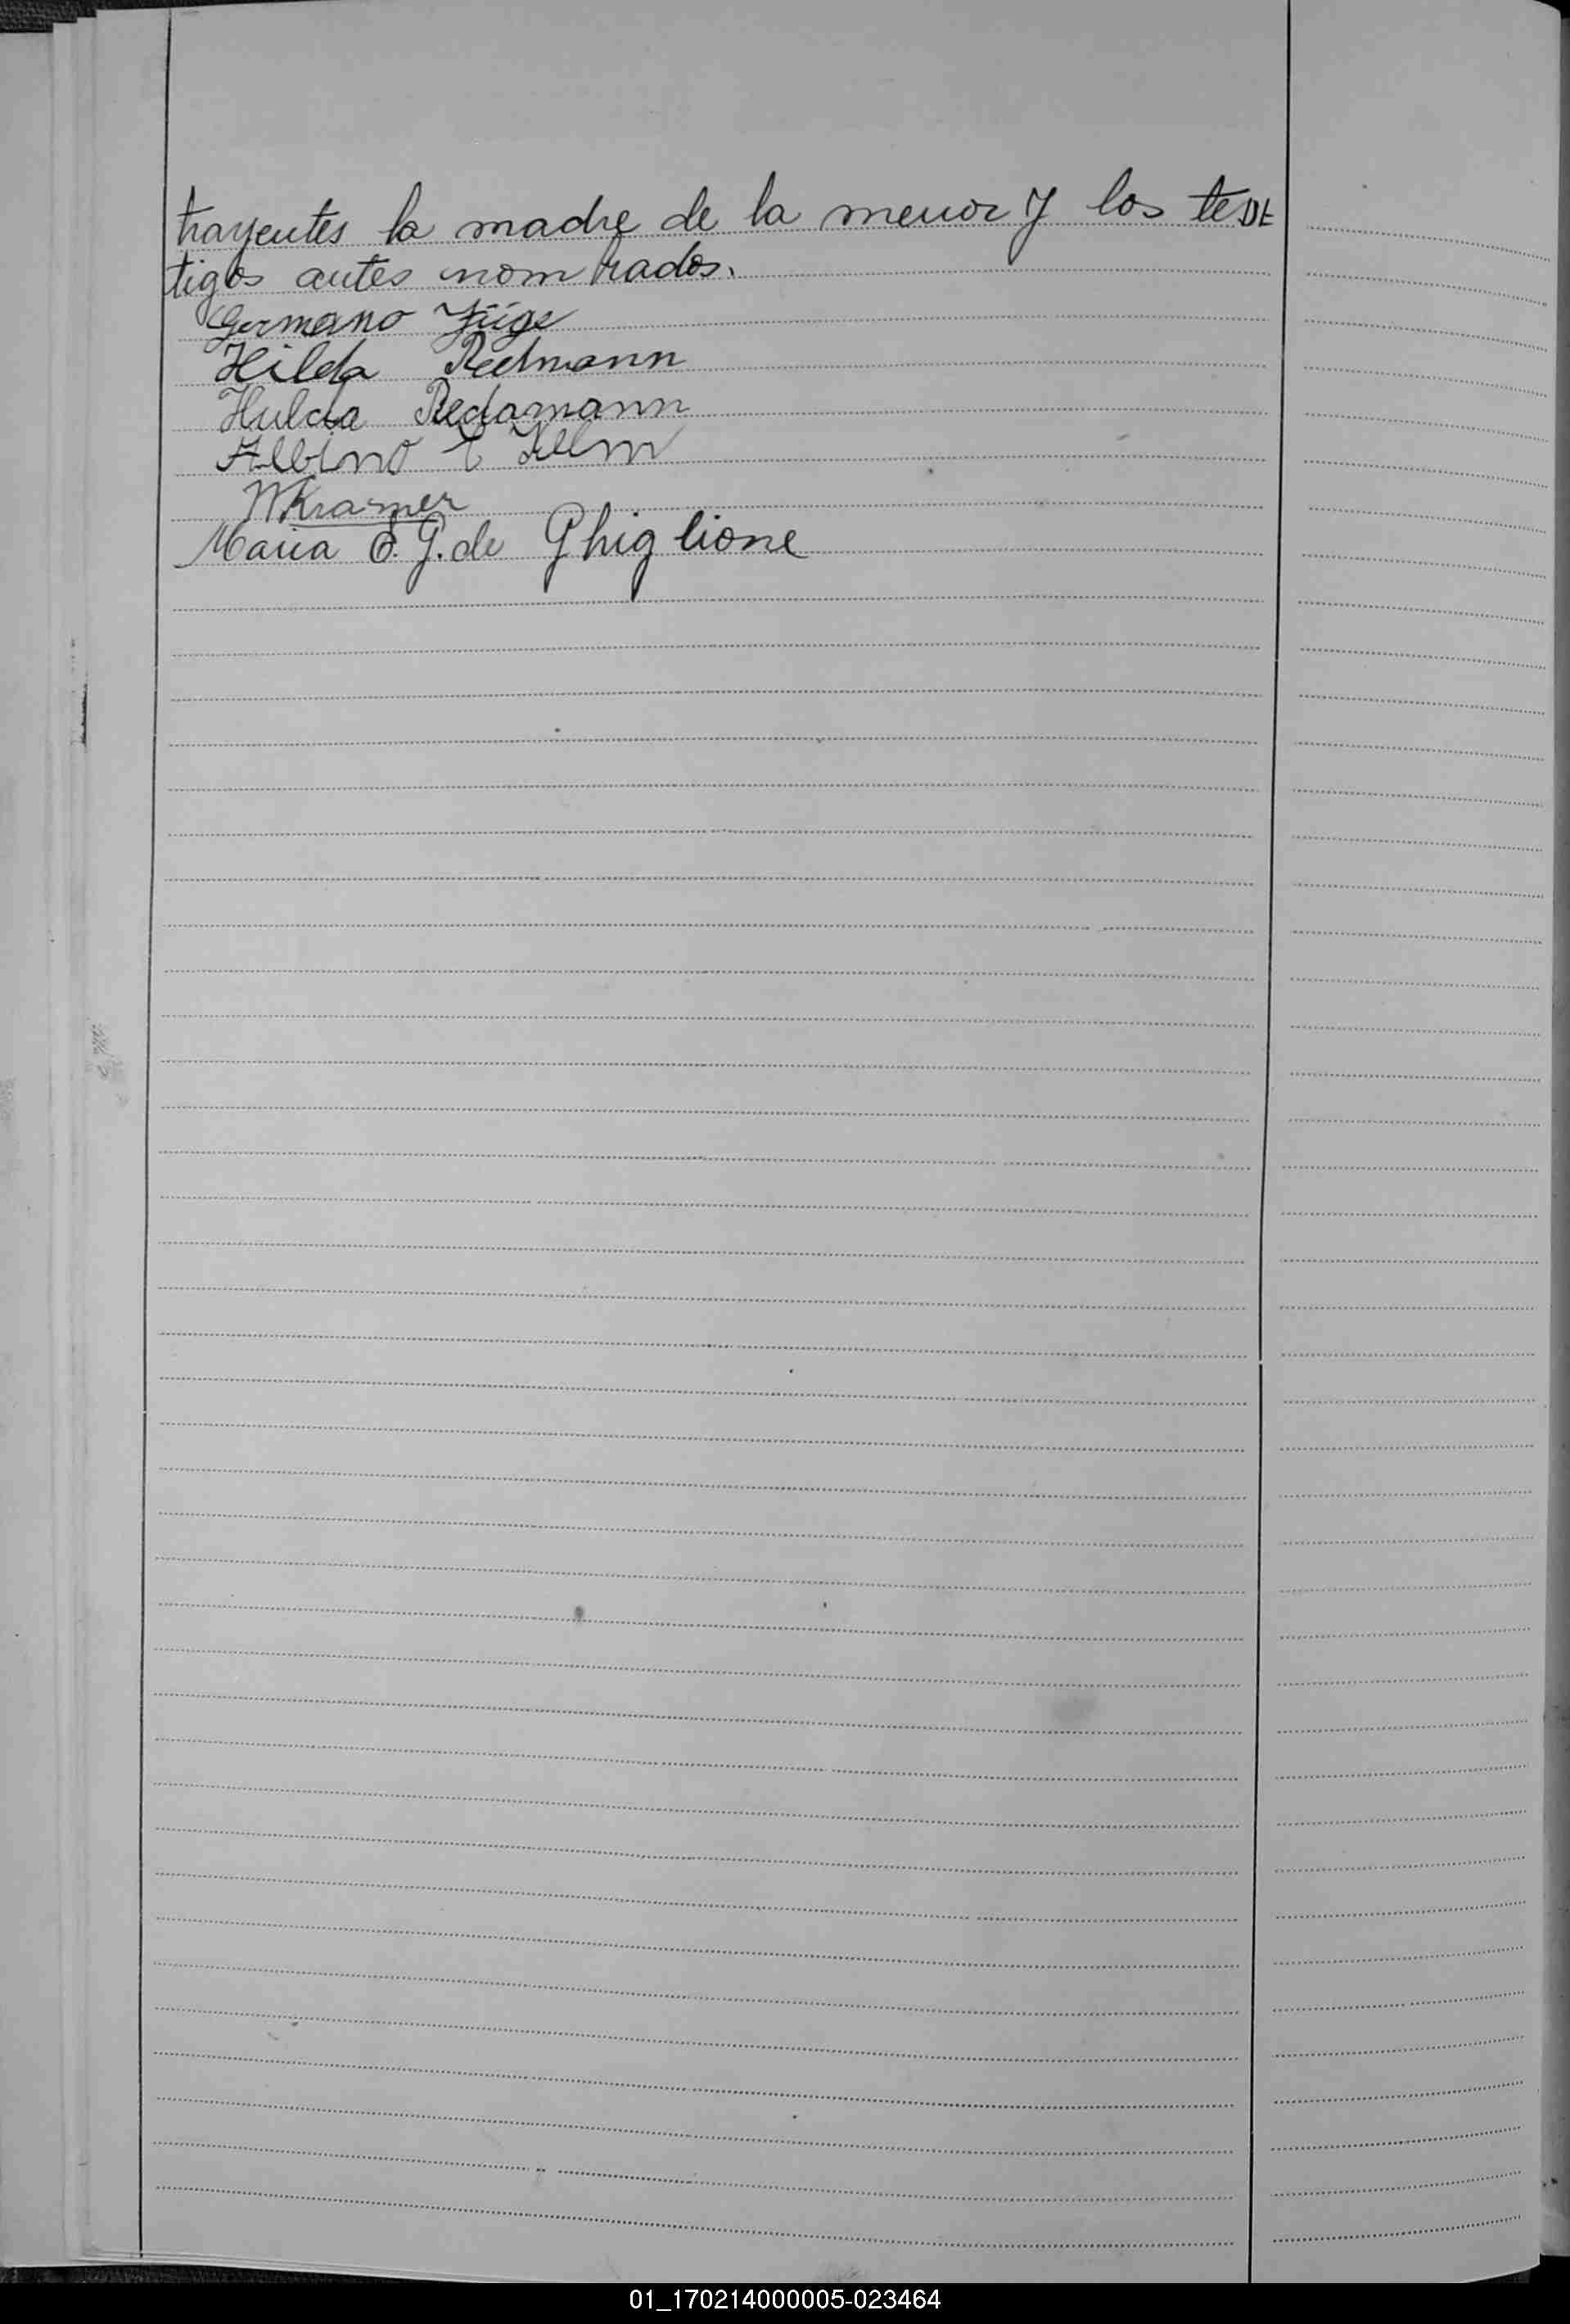 trayentes la madre de la menor y los tes
tigos antes nombrados.
Germano Jüge
Hilda Redmann
Hulda Redamann
Albino E Kelm
WKramer
Maria E. G. de Ghiglione
01_170214000005-023464